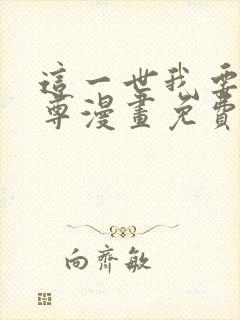 這一世我要
尊漫畫免費
向齊敏